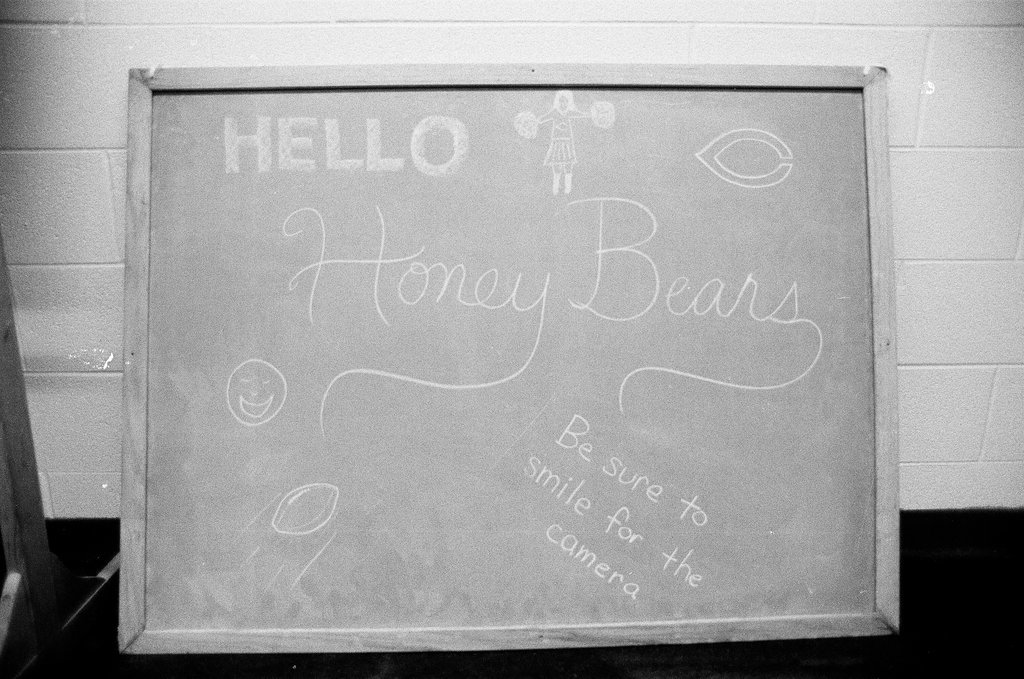 HELLO
Honey Bears
Be sure to
smile for the
camera